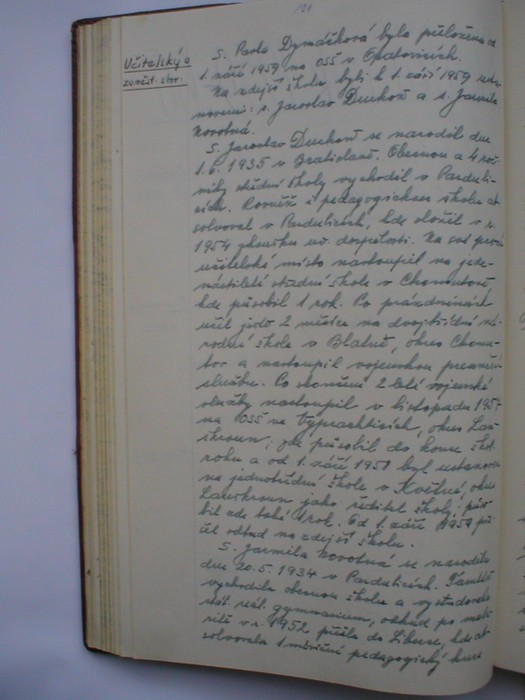 121
Učitelský a
zaměst. sbor.
S. Pavla Dymáčková byla přeložena od
1. září 1959 na OSŠ v Opatovicích.
Na zdejší školu byli k 1. září 1959 usta-
noveni: s. Jaroslav Duchoň a s. Jarmila
Novotná.
S. Jaroslav Duchoň se narodil dne
1. 6. 1935 v Bratislavě. Obecnou a 4 roč-
níky střední školy vychodil v Pardubi-
cích. Rovněž i pedagogickou školu ab-
solvoval v Pardubicích, kde složil v r.
1954 zkoušku uč. dospělosti. Na své první
učitelské místo nastoupil na jede-
náctileté střední škole v Chomutově,
kde působil 1 rok. Po prázdninách
učil ještě 2 měsíce na dvojtřídní ná-
rodní škole v Blatně, okres Chomu-
tov a nastoupil vojenskou presenční
službu. Po skončení 2 leté vojenské
služby nastoupil v listopadu 1957
na OSŠ ve Výprachticích, okres Lan-
škroun; zde působil do konce škol.
roku a od 1. září 1958 byl ustanoven
na jednotřídní škole v Květné, okres
Lanškroun jako ředitel školy; půso-
bil zde také 1 rok. Od 1. září 1959 při-
šel odtud na zdejší školu.
S. Jarmila Novotná se narodila
dne 20. 5. 1934 v Pardubicích. Tamtéž
vychodila obecnou školu a vystudovala
stát. reál. gymnasium, odkud po matu-
ritě v r. 1952 přišla do Liberce, kde ab-
solvovala 1 měsíční pedagogický kurs